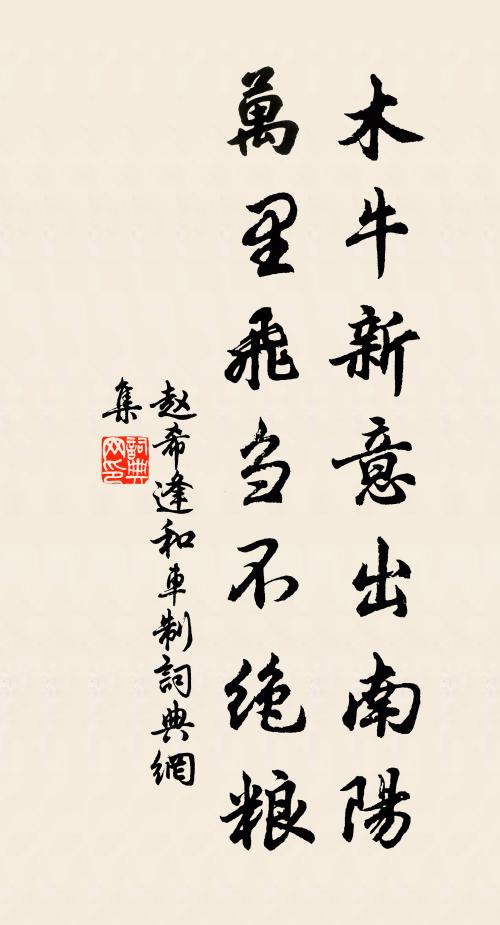 木牛新意出南陽
萬里飛刍不绝粮
赵希逢和車制詞典網
集
詞典
网印